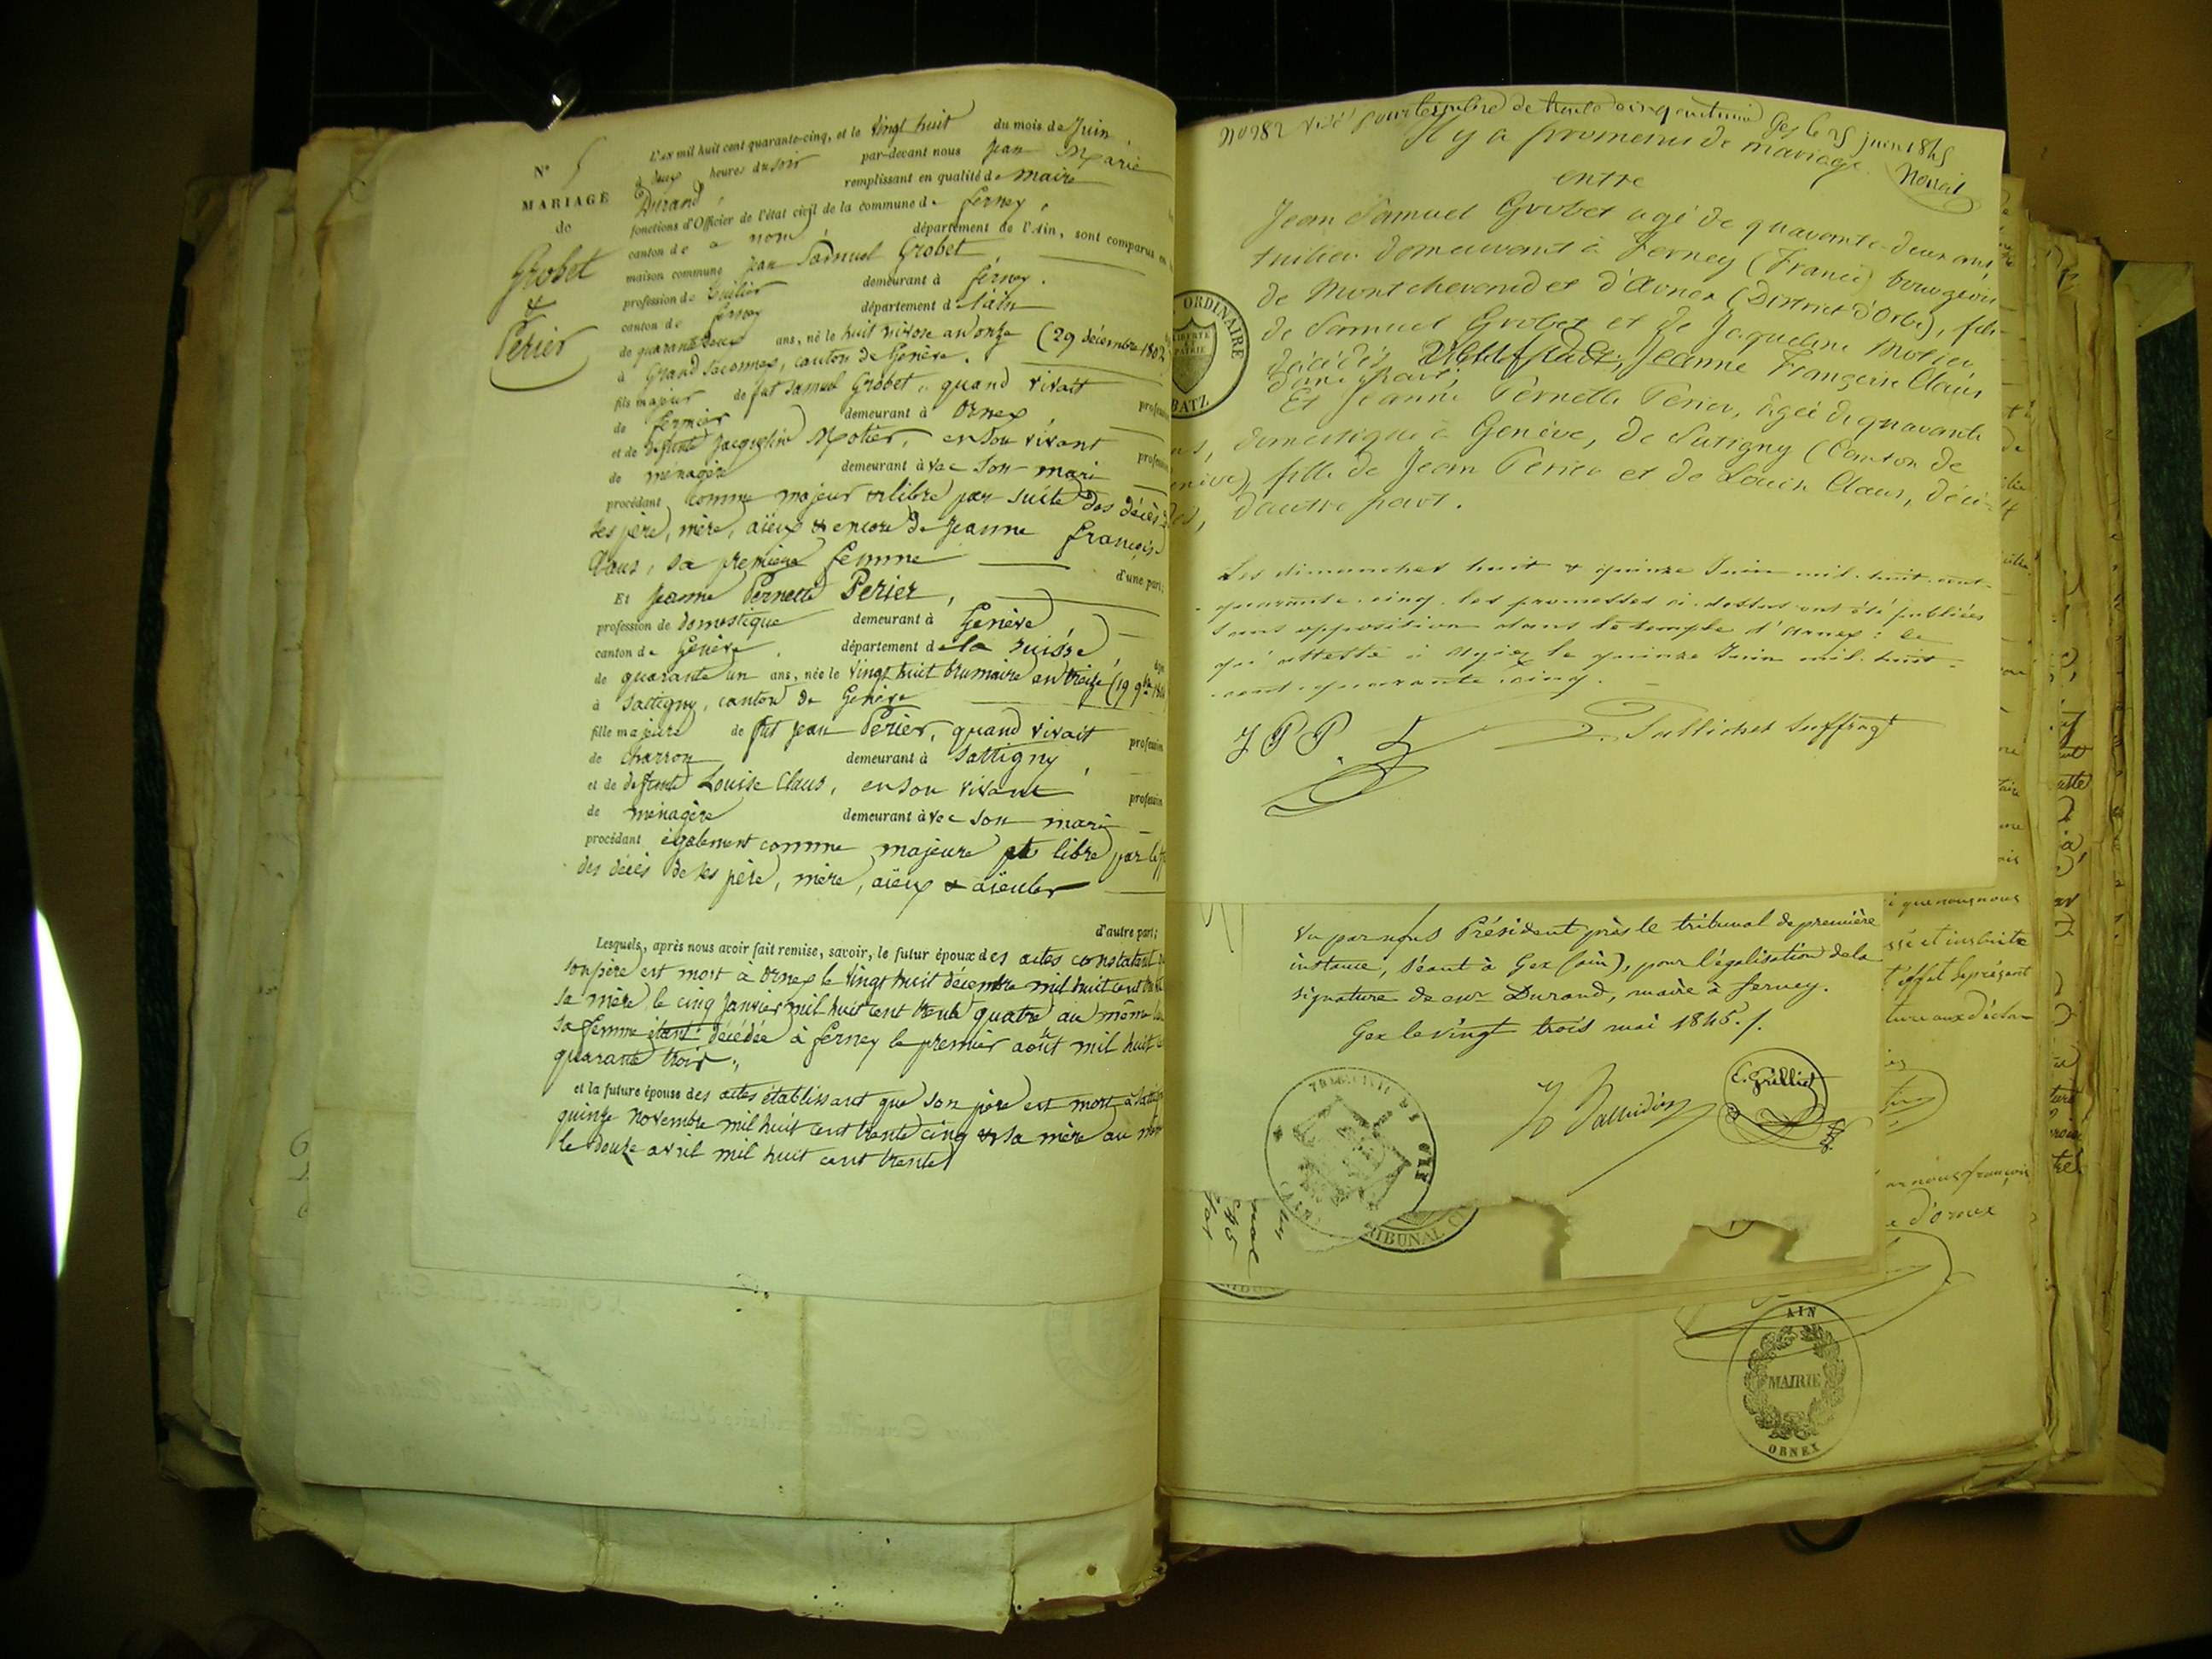 N° 5
MARIAGE
de
Grobet
&
Perier
L'an mil huit cent quarante-cinq, et le vingt huit du mois de Juin
à deux heures du soir par-devant nous Jean Marie
Durand, remplissant en qualité de maire
fonctions d'Officier de l'état civil de la commune de ferney,
canton de a nom département de l'Ain, sont comparus en
maison commune Jean Samuel Grobet,
profession de tuilier demeurant à ferney.
canton de ferney département de l'ain
de quarante deux ans, né le huit nivose an onze (29 décembre 1802
à Grand Saconnex, canton de Genève.
fils majeur de fut Samuel Grobet, quand vivait profession
de fermier demeurant à Ornex,
et de défunte Jacqueline Motier, en son vivant profession
de ménagère demeurant avec son mari
procédant comme majeur & libre par suite des décès
ses père, mère, aïeux & encore de Jeanne françoise
Claus, sa première femme d'une part;
Et Jeanne Pernette Perier,
profession de domestique demeurant à Genève
canton de Genève. département de la suisse
de quarante un ans, née le vingt huit brumaire an treize (19 9bre
à Sattigny, canton de Genève
fille majeure de fut Jean Perier, quand vivait profession
de charron demeurant à Sattigny,
et de défunte Louise Claus, en son vivant profession
de ménagère demeurant avec son mari
procédant également comme majeure et libre par
des décès de ses père, mère, aïeux & aïeules
d'autre part;
Lesquels, après nous avoir fait remise, savoir, le futur époux des actes constatant
son père est mort à Ornex le vingt huit décembre mil huit cent
sa mère le cinq Janvier mil huit cent trente quatre au même
sa femme étant décédée à ferney le premier août mil huit
quarante trois,
et la future épouse des actes établissant que son père est mort à
quinze novembre mil huit cent trente cinq & sa mère au
le douze avril mil huit cent trente
No 982 Visé pour timbre de trente cinq centimes Gex le 25 juin 1845
Il y a promesses de mariage
entre
Jean Samuel Grobet agé de quarante-deux ans,
tuilier demeurant à Ferney (France) bourgeois
de Montcherand et d'Arnex (District d'Orbe), fils
de Samuel Grobet et de Jaqueline Motier
décédés, Jeanne Françoise Claus
d'une part;
Et Jeanne Pernette Perier, âgée de quarante
ns, domestique à Genève, de Satigny (Canton de
enève), fille de Jean Perier et de Louise Claus, décé-
dés, d'autre part.
ORDINAIRE
LIBERTÉ
ET
PATRIE
BATZ
Les dimanches huit & quinze Juin mil-huit-cent-
quarante-cinq, les promesses ci-dessus ont été publiées
sans opposition dans le temple d'Arnex: ce
qui atteste à Agiez le quinze Juin mil-huit-
cent-quarante-cinq.
Tallichet Suffragt
Vu par nous Président près le tribunal de première
instance, séant à Gex (ain), pour légalisation de la
signature de mr Durand, maire à ferney.
Gex le vingt trois mai 1845.
C. Grilliet
TRIBUNAL
AIN
MAIRIE
ORNEX
que nous nous
d'ornex